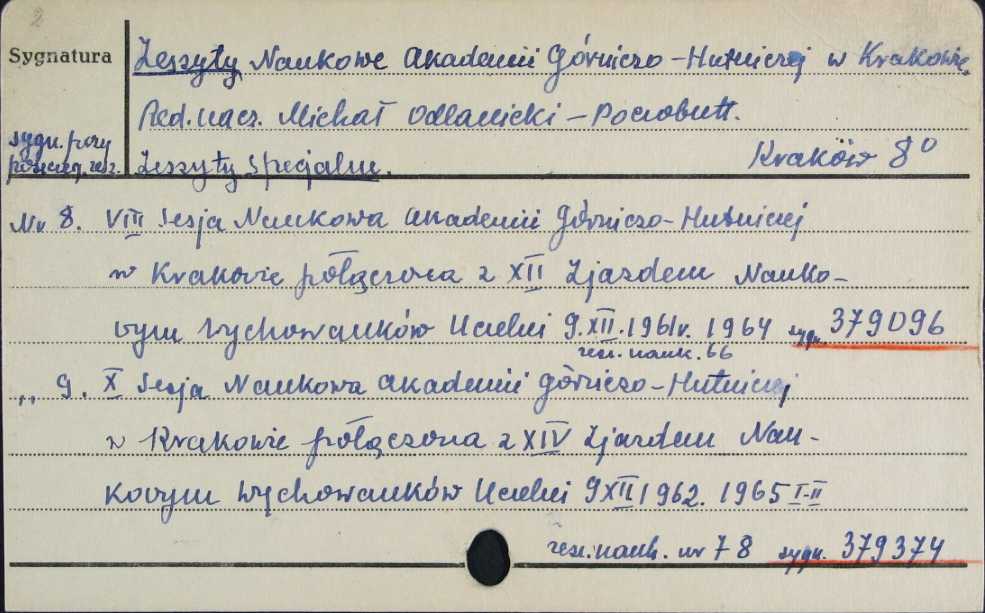 2
Sygnatura
Zeszyty Naukowe Akademii Górniczo-Hutniczej w Krakowie.
Red. nacz. Michał Odlanicki-Poczobutt.
Kraków 8°
sygn. przy
poszczeg. zesz.
Zeszyty specjalne.
Nr 8. VIII Sesja Naukowa Akademii Górniczo-Hutniczej
w Krakowie połączona z XII Zjazdem Nauko-
wym Wychowanków Uczelni 9.XII.1961r. 1964 sygn. 379096
zesz. nauk. 66
„ 9. X Sesja Naukowa Akademii Górniczo-Hutniczej
w Krakowie połączona z XIV Zjazdem Nau-
kowym Wychowanków Uczelni 9 XII 1962. 1965 I-II
zesz. nauk. nr 78 sygn. 379374